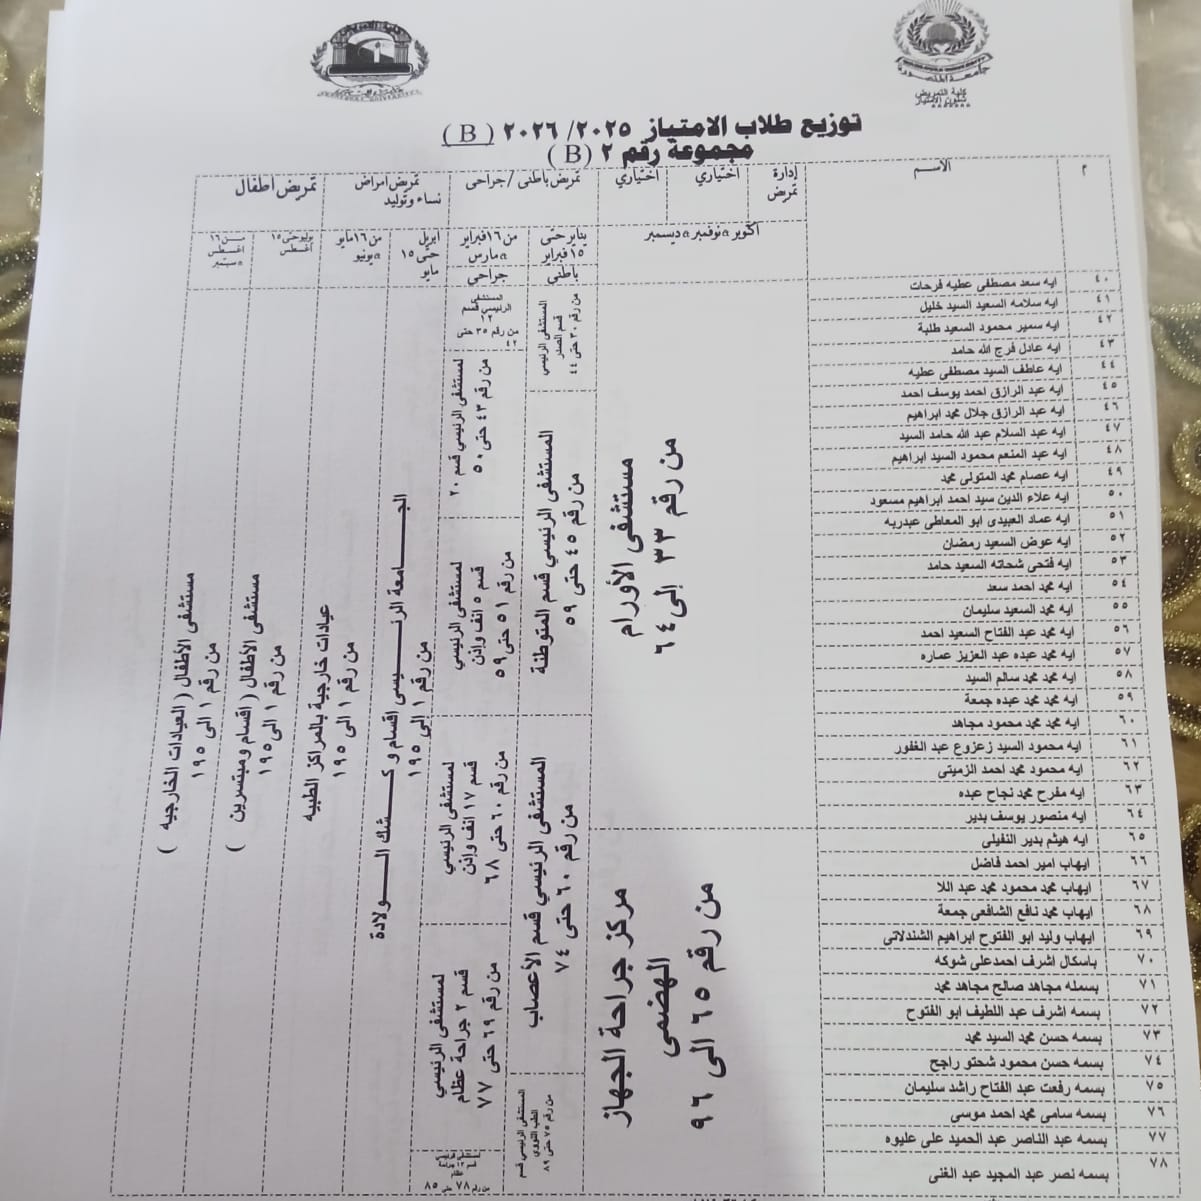 جامعة المنصورة
كلية التمريض
شئون الامتياز
توزيع طلاب الامتياز ٢٠٢٥/ ٢٠٢٦ ( B )
مجموعة رقم ٢ ( B )
م
الاسم
إدارة تمريض
اختياري
اختياري
تمريض باطنى / جراحى
تمريض امراض نساء وتوليد
تمريض اطفال
أكتوبر & نوفمبر & ديسمبر
يناير حتى ١٥ فبراير
من ١٦ فبراير & مارس
ابريل حتى ١٥ مايو
من ١٦ مايو & يونيو
يوليو حتى ١٥ أغسطس
من ١٦ اغسطس & سبتمبر
باطني
جراحي
٤٠ ايه سعد مصطفى عطيه فرحات
٤١ ايه سلامه السعيد السيد خليل
٤٢ ايه سمير محمود السعيد طلبة
٤٣ ايه عادل فرج الله حامد
٤٤ ايه عاطف السيد مصطفى عطيه
٤٥ ايه عبد الرازق احمد يوسف احمد
٤٦ ايه عبد الرازق جلال محمد ابراهيم
٤٧ ايه عبد السلام عبد الله حامد السيد
٤٨ ايه عبد المنعم محمود السيد ابراهيم
٤٩ ايه عصام محمد المتولى محمد
٥٠ ايه علاء الدين سيد احمد ابراهيم مسعود
٥١ ايه عماد العبيدى ابو المعاطى عبدربه
٥٢ ايه عوض السعيد رمضان
٥٣ ايه فتحى شحاته السعيد حامد
٥٤ ايه محمد احمد سعد
٥٥ ايه محمد السعيد سليمان
٥٦ ايه محمد عبد الفتاح السعيد احمد
٥٧ ايه محمد عبده عبد العزيز عماره
٥٨ ايه محمد محمد سالم السيد
٥٩ ايه محمد محمد عبده جمعة
٦٠ ايه محمد محمد محمود مجاهد
٦١ ايه محمود السيد زعزوع عبد الغفور
٦٢ ايه محمود محمد احمد الزميتى
٦٣ ايه مفرح محمد نجاح عبده
٦٤ ايه منصور يوسف بدير
٦٥ ايه هيثم بدير النفيلى
٦٦ ايهاب امير احمد فاضل
٦٧ ايهاب محمد محمود محمد عبد اللا
٦٨ ايهاب محمد نافع الشافعى جمعة
٦٩ ايهاب وليد ابو الفتوح ابراهيم الشندلاتى
٧٠ باسكال اشرف احمدعلى شوكه
٧١ بسمله مجاهد صالح مجاهد محمد
٧٢ بسمه اشرف عبد اللطيف ابو الفتوح
٧٣ بسمه حسن محمد السيد محمد
٧٤ بسمه حسن محمود شحتو راجح
٧٥ بسمه رفعت عبد الفتاح راشد سليمان
٧٦ بسمه سامى محمد احمد موسى
٧٧ بسمه عبد الناصر عبد الحميد على عليوه
٧٨ بسمه نصر عبد المجيد عبد الغنى
مستشفى الأورام
من رقم ٣٣ إلى ٦٤
مركز جراحة الجهاز الهضمى
من رقم ٦٥ الى ٩٦
المستشفى الرئيسي قسم الصدر
من رقم ٣٠ حتى ٤٤
المستشفى الرئيسي قسم المتوطنة
من رقم ٤٥ حتى ٥٩
المستشفى الرئيسي قسم الأعصاب
من رقم ٦٠ حتى ٧٤
المستشفى الرئيسي قسم الطب النووي
من رقم ٧٥ حتى ٨٩
المستشفى الرئيسي قسم
من رقم ٣٥ حتى ٤٢
لمستشفى الرئيسي قسم ٢٠
من رقم ٤٣ حتى ٥٠
لمستشفى الرئيسي
قسم ٥ انف واذن
من رقم ٥١ حتى ٥٩
لمستشفى الرئيسي
قسم ١٧ انف واذن
من رقم ٦٠ حتى ٦٨
لمستشفى الرئيسي
قسم ٢ جراحة عظام
من رقم ٦٩ حتى ٧٧
لمستشفى الرئيسي
جراحة عظام
من رقم ٧٨ حتى ٨٥
الجامعة الرئيسى اقسام وكشك الولادة
من رقم ١ الى ١٩٥
عيادات خارجية بالمراكز الطبيه
من رقم ١ الى ١٩٥
مستشفى الأطفال ( اقسام ومبتسرين )
من رقم ١ الى ١٩٥
مستشفى الأطفال ( العيادات الخارجيه )
من رقم ١ الى ١٩٥